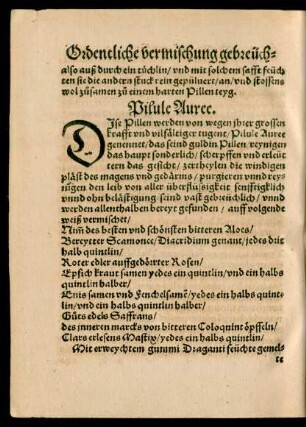 Ordentliche vermischung gebreüch-
also auß durch ein tüchlin/ vnd mit solchem safft feüch
ten sie die andern stuck rein gepülvert/ an/ vnd stossens
wol zůsamen zů einem harten Pillen teyg.
Pilule Auree.
DIse Pillen werden von wegen jhrer grossen
krafft vnd vilfältiger tugent/ Pilule Auree
genennet/ das seind guldin Pillen/ reynigen
das haupt sonderlich/ scherpffen vnd erleüch
tern das gesicht/ zertheylen die windigen
pläst des magens vnd gedärms/ purgieren vnnd reyni
gen den leib von aller überflüssigkeit senfftigklich
vnnd ohn belästigung/ seind vast gebreüchlich/ vnnd
werden allenthalben bereyt gefunden/ auff volgende
weiß vermischet/
Nim̃ des besten vnd schönsten bitteren Aloes/
Bereytter Scamonee/ Diacridium genant/ jedes drit
halb quintlin/
Roter edler auffgedörrter Rosen/
Epfich kraut samen yedes ein quintlin/ vnd ein halbs
quintlin halber/
Enis samen vnd Fenchelsamẽ/ yedes ein halbs quint-
lin/ vnd ein halbs quintlin halber/
Gůts edels Saffrans/
des inneren marcks von bitteren Coloquint öpffeln/
Clars erlesens Mastix/ yedes ein halbs quintlin/
Mit erweychtem gummi Draganti feüchte gemel-
te